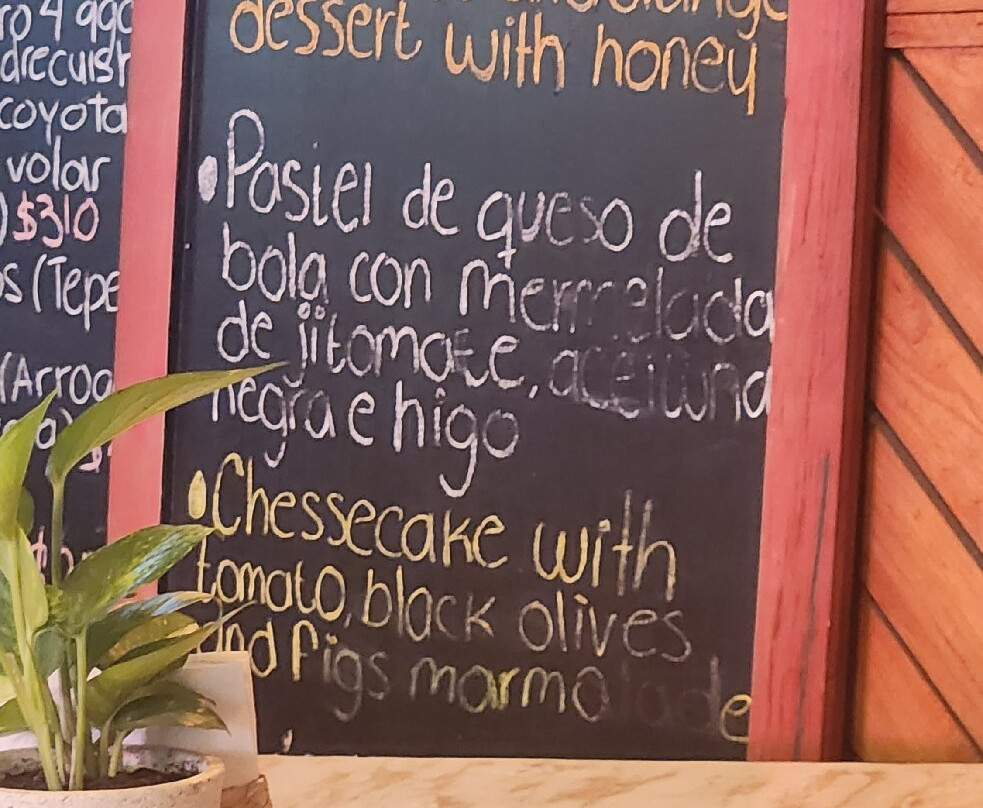 ro 4 ago
drecuisr
coyota
volar
) $310
os (Tepe
(Arroo
dessert with honey
•Pastel de queso de
bola con mermelada
de jitomate, aceituna
negra e higo
•Chessecake with
tomato, black olives
and figs marmolade